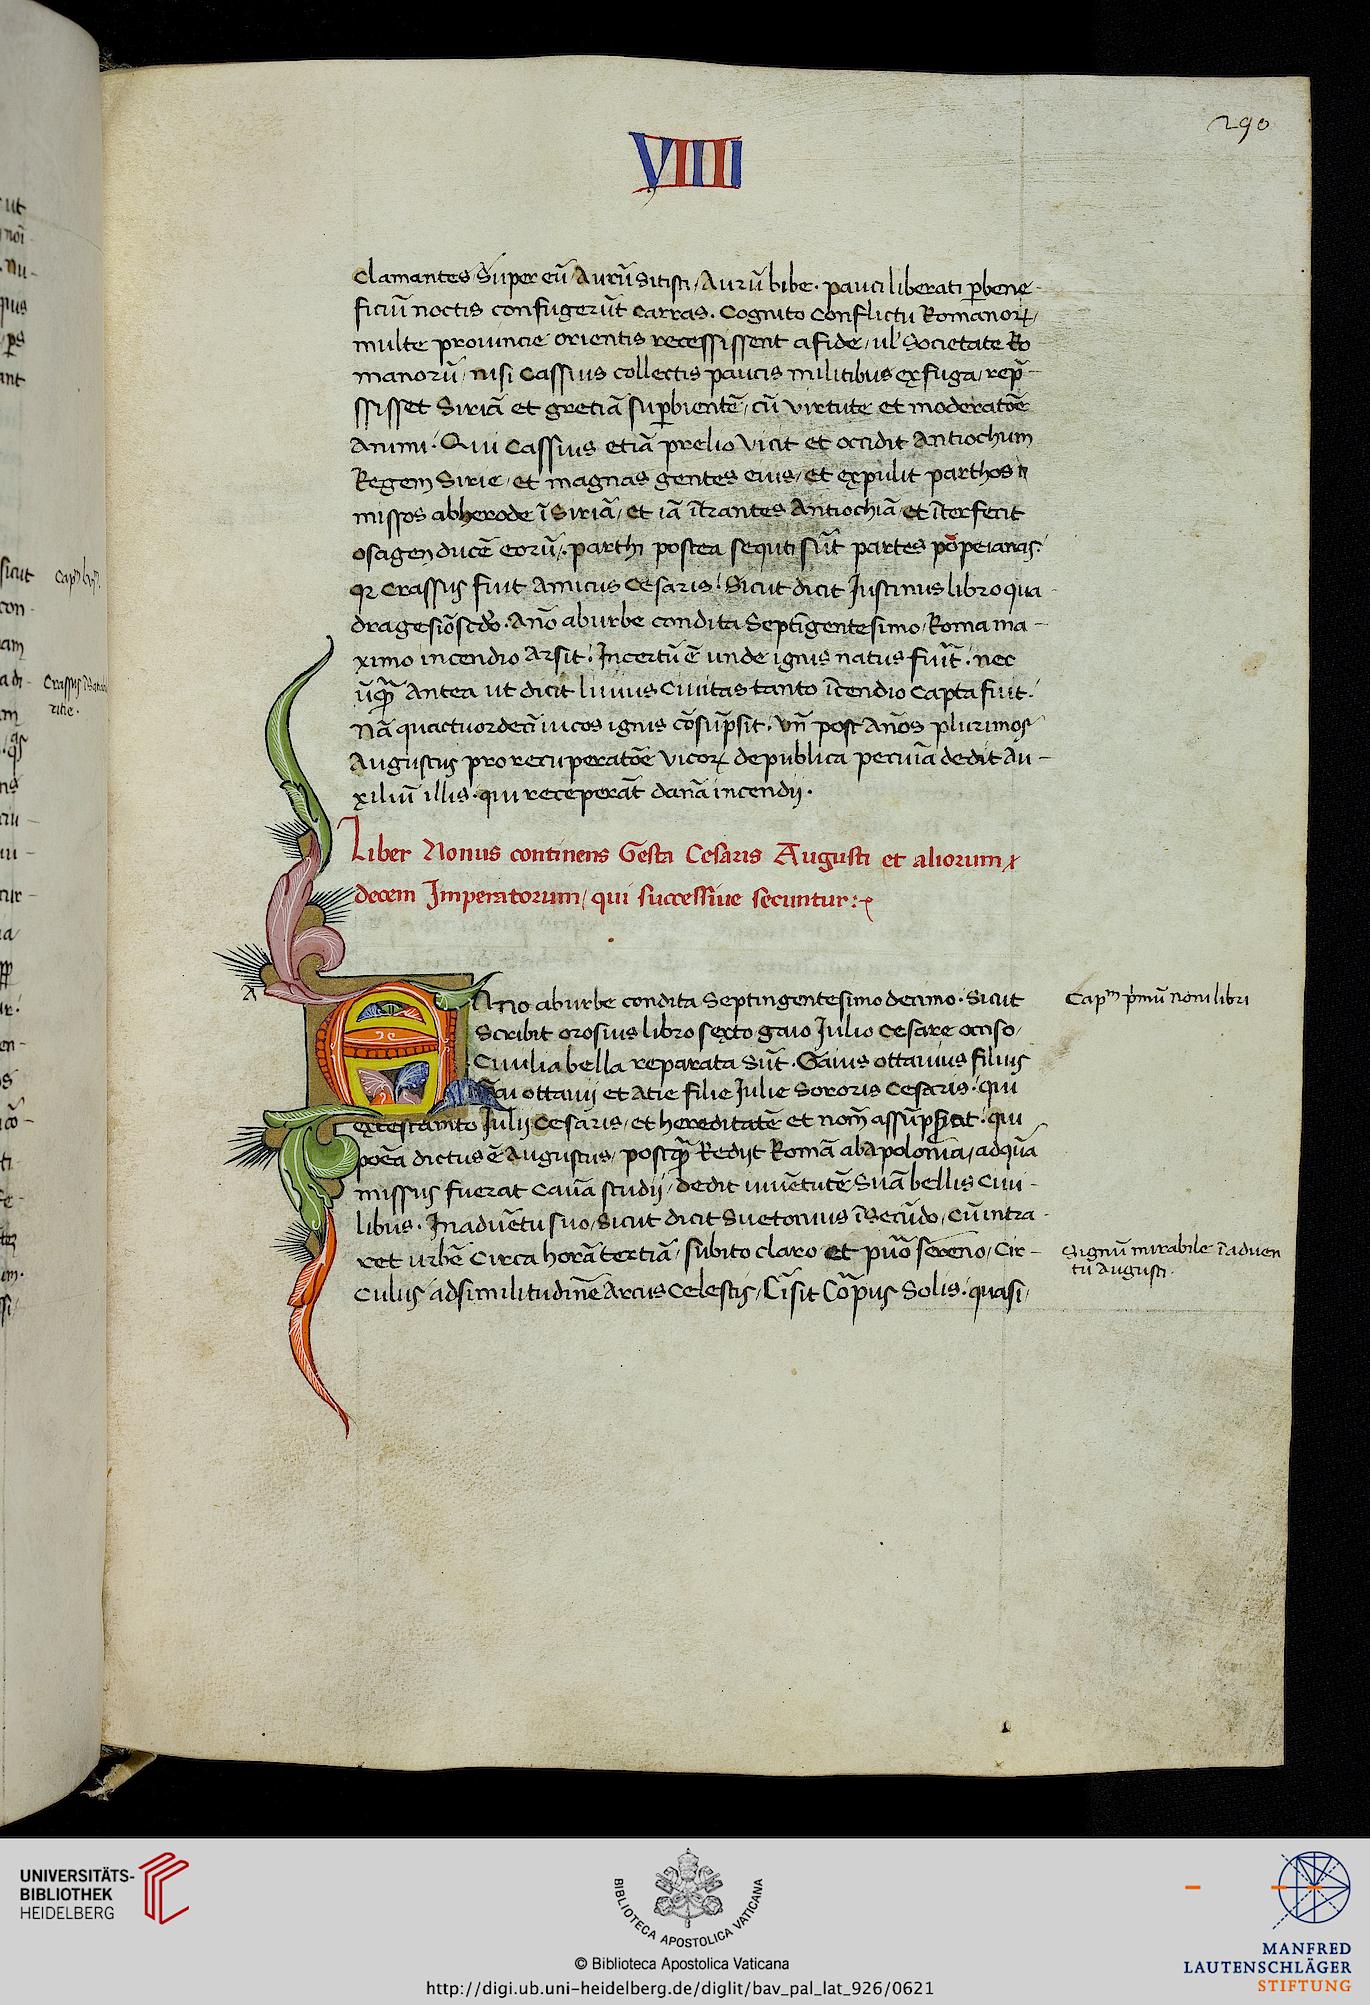 290
VIIII
Clamantes Super eū/ Aurū sitisti/ Aurū bibe. pauci liberati p bene-
ficiū noctis confugerūt carras. Cognito conflictu Romanorꝝ/
multe prouincie orientis recessissent a fide/ ul' Societate Ro
manorū/ nisi Cassius collectis paucis militibus ex fuga/ rep̄-
ssisset Siriā et greciā suꝑbientē/ cū virtute et moderatōe
Animi. Qui Cassius etiā prelio vicit et occidit Antiochum
Regem Sirie/ et magnas gentes eius/ et expulit parthos
missos ab herode ī Siriā/ et iā ītrantes Antiochiā/ et īterfecit
osagen ducē eorū/. parthi postea sequti sūt partes pōpeianas.
qꝛ Crassus fuit Amicus Cesaris. Sicut dicit Justinus libro qua
dragesiō scd̄o. An̄o ab urbe condita Septīgentesimo/ Roma ma-
ximo incendio Arsit. Incertū ē unde ignis natus fuīt. nec
ūq̄ꝫ Antea ut dicit liuius Ciuitas tanto īcendio capta fuit.
Nā quactuordecī uicos ignis cōsūpsit. Vn̄ post An̄os plurimos
Augustus pro recuperatōe vicorꝝ de publica pecuīa dedit Au-
xiliū illis. qui receperāt dan̄a incendij.
Liber Nonus continens Gesta Cesaris Augusti et aliorum
decem Imperatorum/ qui successiue secuntur:
A
Ano ab urbe condita Septingentesimo decimo. Sicut
Scribit orosius libro sexto gaio Julio Cesare occiso/
Ciuilia bella reparata sūt. Gaius ottauius filius
Gai ottauij et Atie filie Julie Sororis Cesaris. qui
ex testamīto Julij Cesaris/ et hereditatē et nom̄ assūpserat. qui
poēa dictus ē Augustus/ postq̄ꝫ Redijt Romā ab Apolonīa/ ad quā
missus fuerat cauā studij/ dedit iuuētutē Suā bellis Ciui-
libus. In aduētu suo/ sicut dicit Suetonius ī Secūdo/ Cū intra-
ret urbē Circa horā tertiā/ subito claro et puō sereno/ Cir-
culus ad similitudinē Arcus Celestis/ Cīsit Cōrpus Solis. quasi/
Capᵐ pīmū noni libri
Signū mirabile ī aduen
tū Augusti.
UNIVERSITÄTS-
BIBLIOTHEK
HEIDELBERG
BIBLIOTECA APOSTOLICA VATICANA
© Biblioteca Apostolica Vaticana
http://digi.ub.uni-heidelberg.de/diglit/bav_pal_lat_926/0621
MANFRED
LAUTENSCHLÄGER
STIFTUNG